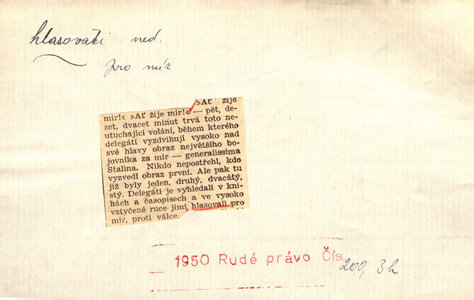 hlasovati ned.
pro mír
»Ať žije
mír!« »Ať žije mír!« — pět, de-
set, dvacet minut trvá toto ne-
utuchající volání, během kterého
delegáti vyzdvihují vysoko nad
své hlavy obraz největšího bo-
jovníka za mír — generalissima
Stalina. Nikdo nepostřehl, kdo
vyzvedl obraz první. Ale pak tu
již byly jeden, druhý, dvacátý,
stý. Delegáti je vyhledali v kni-
hách a časopisech a ve vysoko
vztyčené ruce jimi hlasovali pro
mír, proti válce.
1950 Rudé právo Čís. 200, 3b